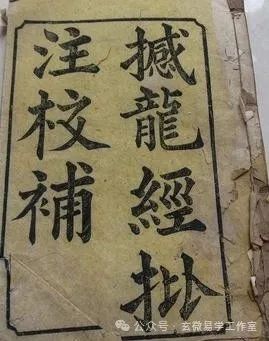 撼龍經批
注校補
公众号·玄微易学工作室